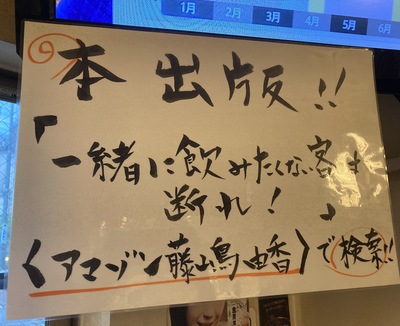 1月 2月 3月 4月 5月 6月
本出版!!
「一緒に飲みたくない客は
断れ!」
〈アマゾン藤嶋由香〉で検索!!